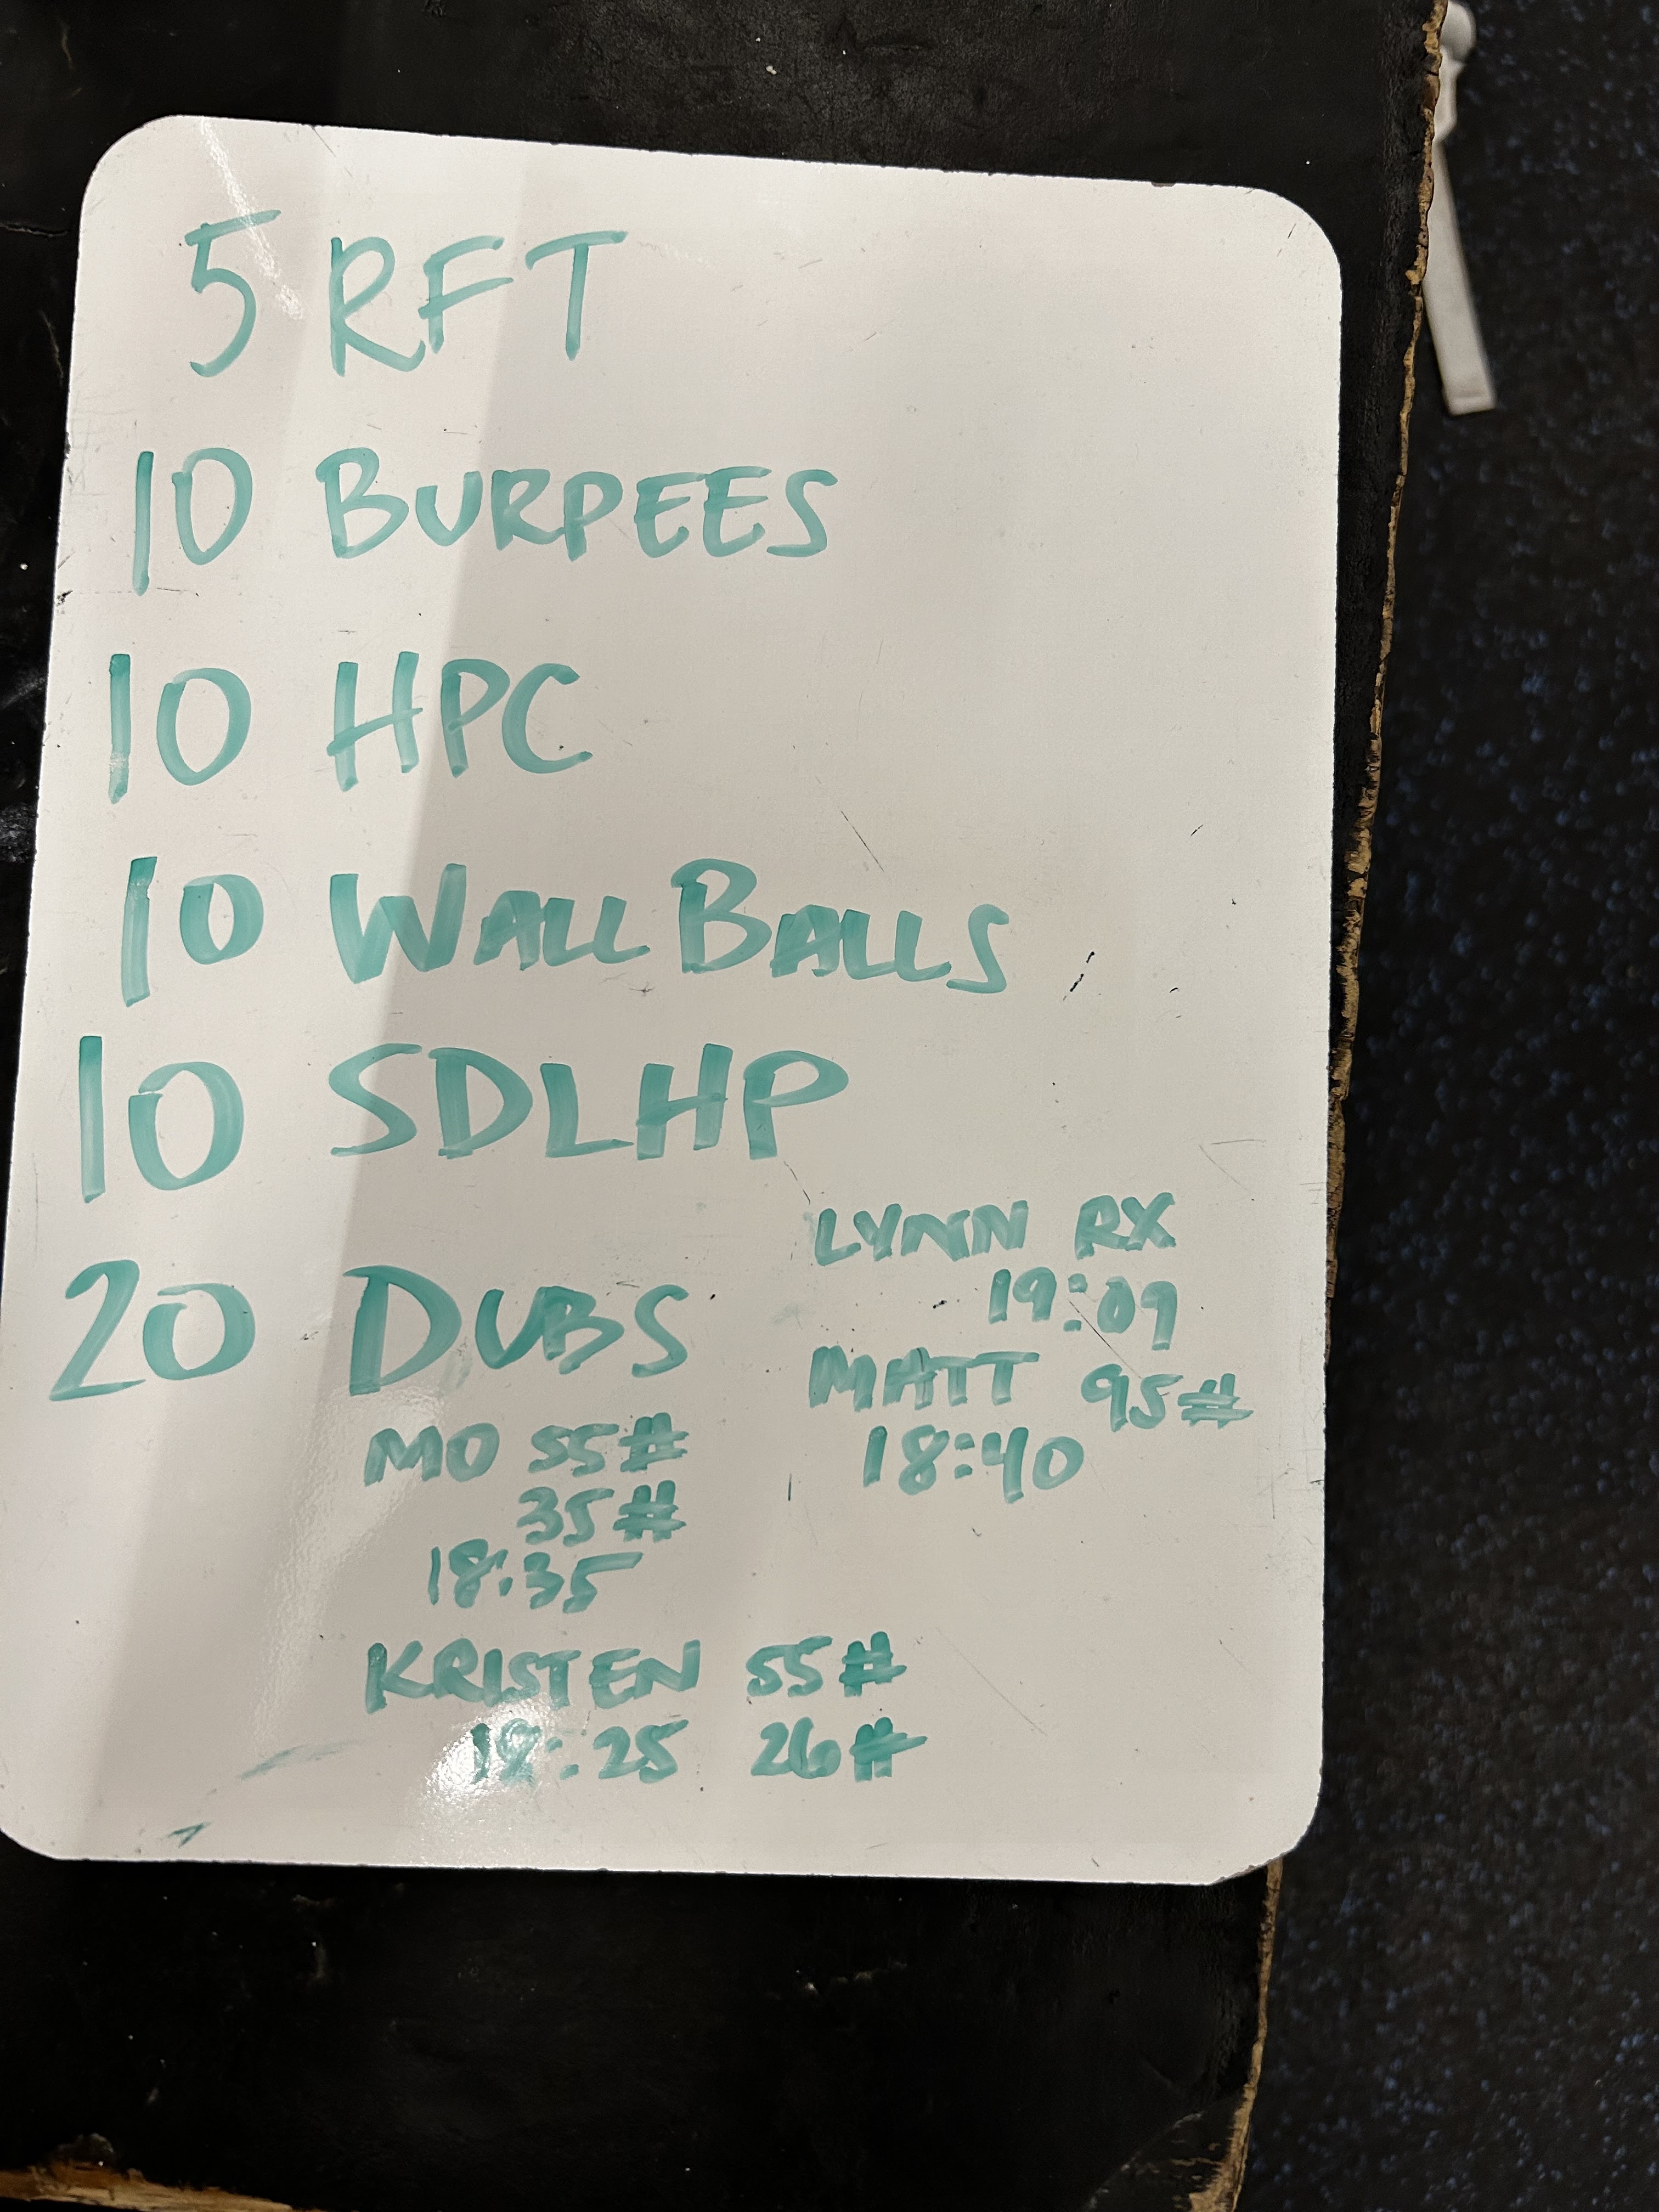 5 RFT
10 BURPEES
10 HPC
10 WALL BALLS
10 SDLHP
20 DUBS
LYNN RX
19:09
MATT 95#
18:40
MO 55#
35#
18:35
KRISTEN 55#
18:25 26#